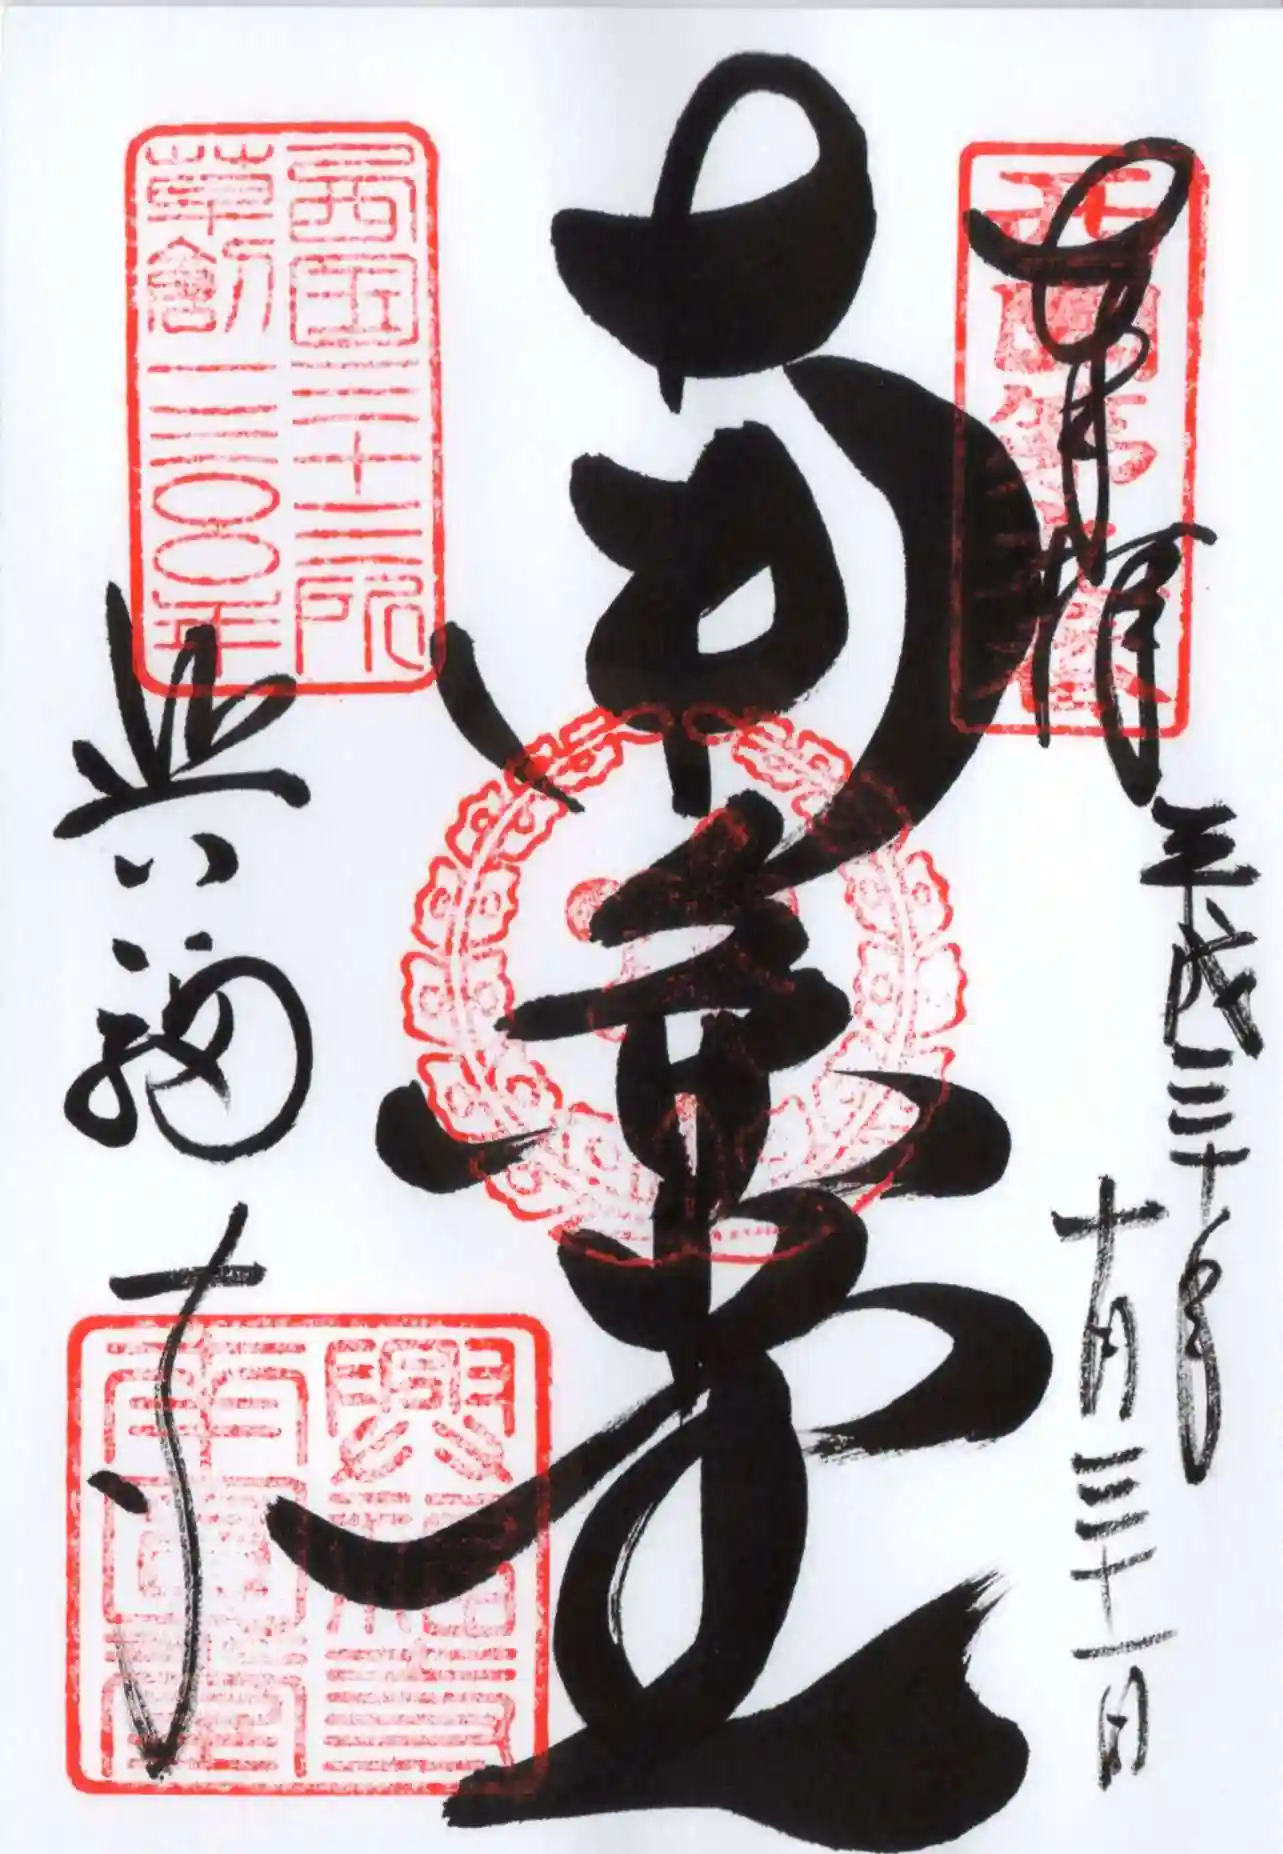 奉拝
平成三十年
十月三十一日
西国第九番
南円堂
興福寺
西国三十三所
草創一三〇〇年
興福寺
南円堂